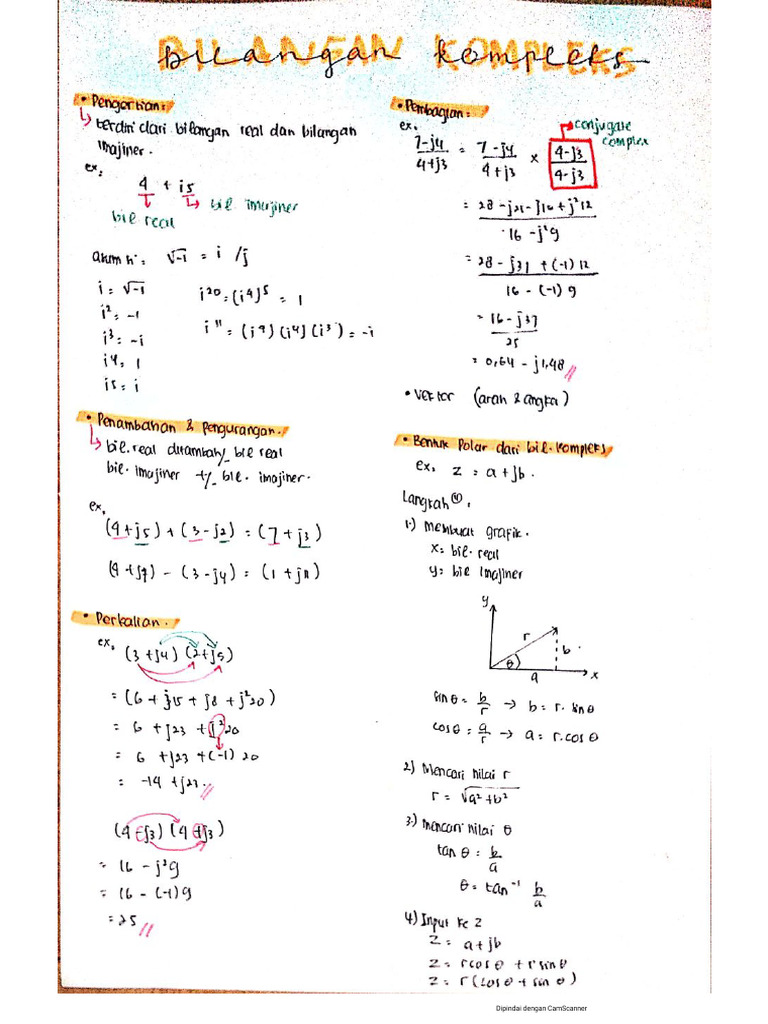 BILANGAN KOMPLEKS
bilangan kompleks
• Pengertian:
↳ terdiri dari bilangan real dan bilangan
imajiner.
ex,
4 + i5
↳ bil imajiner
bil real
√-1 = i /j
i = √-1
i² = -1
i³ = -i
i4 = 1
i5 = i
i²⁰ = (i⁴)⁵ = 1
i¹¹ = (i⁴) (i⁴) (i³) = -i
• Penambahan & pengurangan.
↳ bil. real ditambah/- bil real
bil. imajiner +/- bil. imajiner.
ex,
(4+j5) + (3-j2) = (7+j3)
(4+j7) - (3-j4) = (1+j11)
• Perkalian.
ex,
(3+j4) (2+j5)
= (6 + j15 + j8 + j²20)
= 6 + j23 + j²20
= 6 + j23 + (-1) 20
= -14 + j23 //
(4-j3) (4+j3)
= 16 - j²9
= 16 - (-1) 9
= 25 //
• Pembagian:
ex.
7-j4 / 4+j3 = 7-j4 / 4+j3 × 4-j3 / 4-j3
→ conjugate
complex
= 28 - j21 - j16 + j²12 / 16 - j²9
= 28 - j37 + (-1) 12 / 16 - (-1) 9
= 16 - j37 / 25
= 0,64 - j1,48 //
• Vektor (arah & angka)
• Bentuk Polar dari bil. kompleks
ex, z = a + jb.
Langkah²,
1.) Membuat grafik.
x = bil. real
y = bil imajiner
y
r
b
θ
a
x
sin θ = b/r → b = r. sin θ
cos θ = a/r → a = r.cos θ
2) Mencari nilai r
r = √a²+b²
3.) mencari nilai θ
tan θ = b/a
θ = tan⁻¹ b/a
4) Input ke z
z = a + jb
z = r cos θ + r sin θ
z = r (cos θ + sin θ)
Dipindai dengan CamScanner